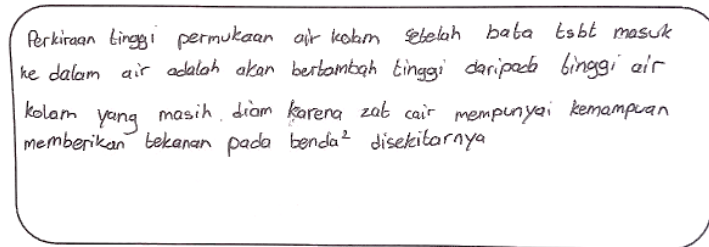 Perkiraan tinggi permukaan air kolam setelah bata tsbt masuk
ke dalam air adalah akan bertambah tinggi daripada tinggi air
kolam yang masih diam karena zat cair mempunyai kemampuan
memberikan tekanan pada benda² disekitarnya